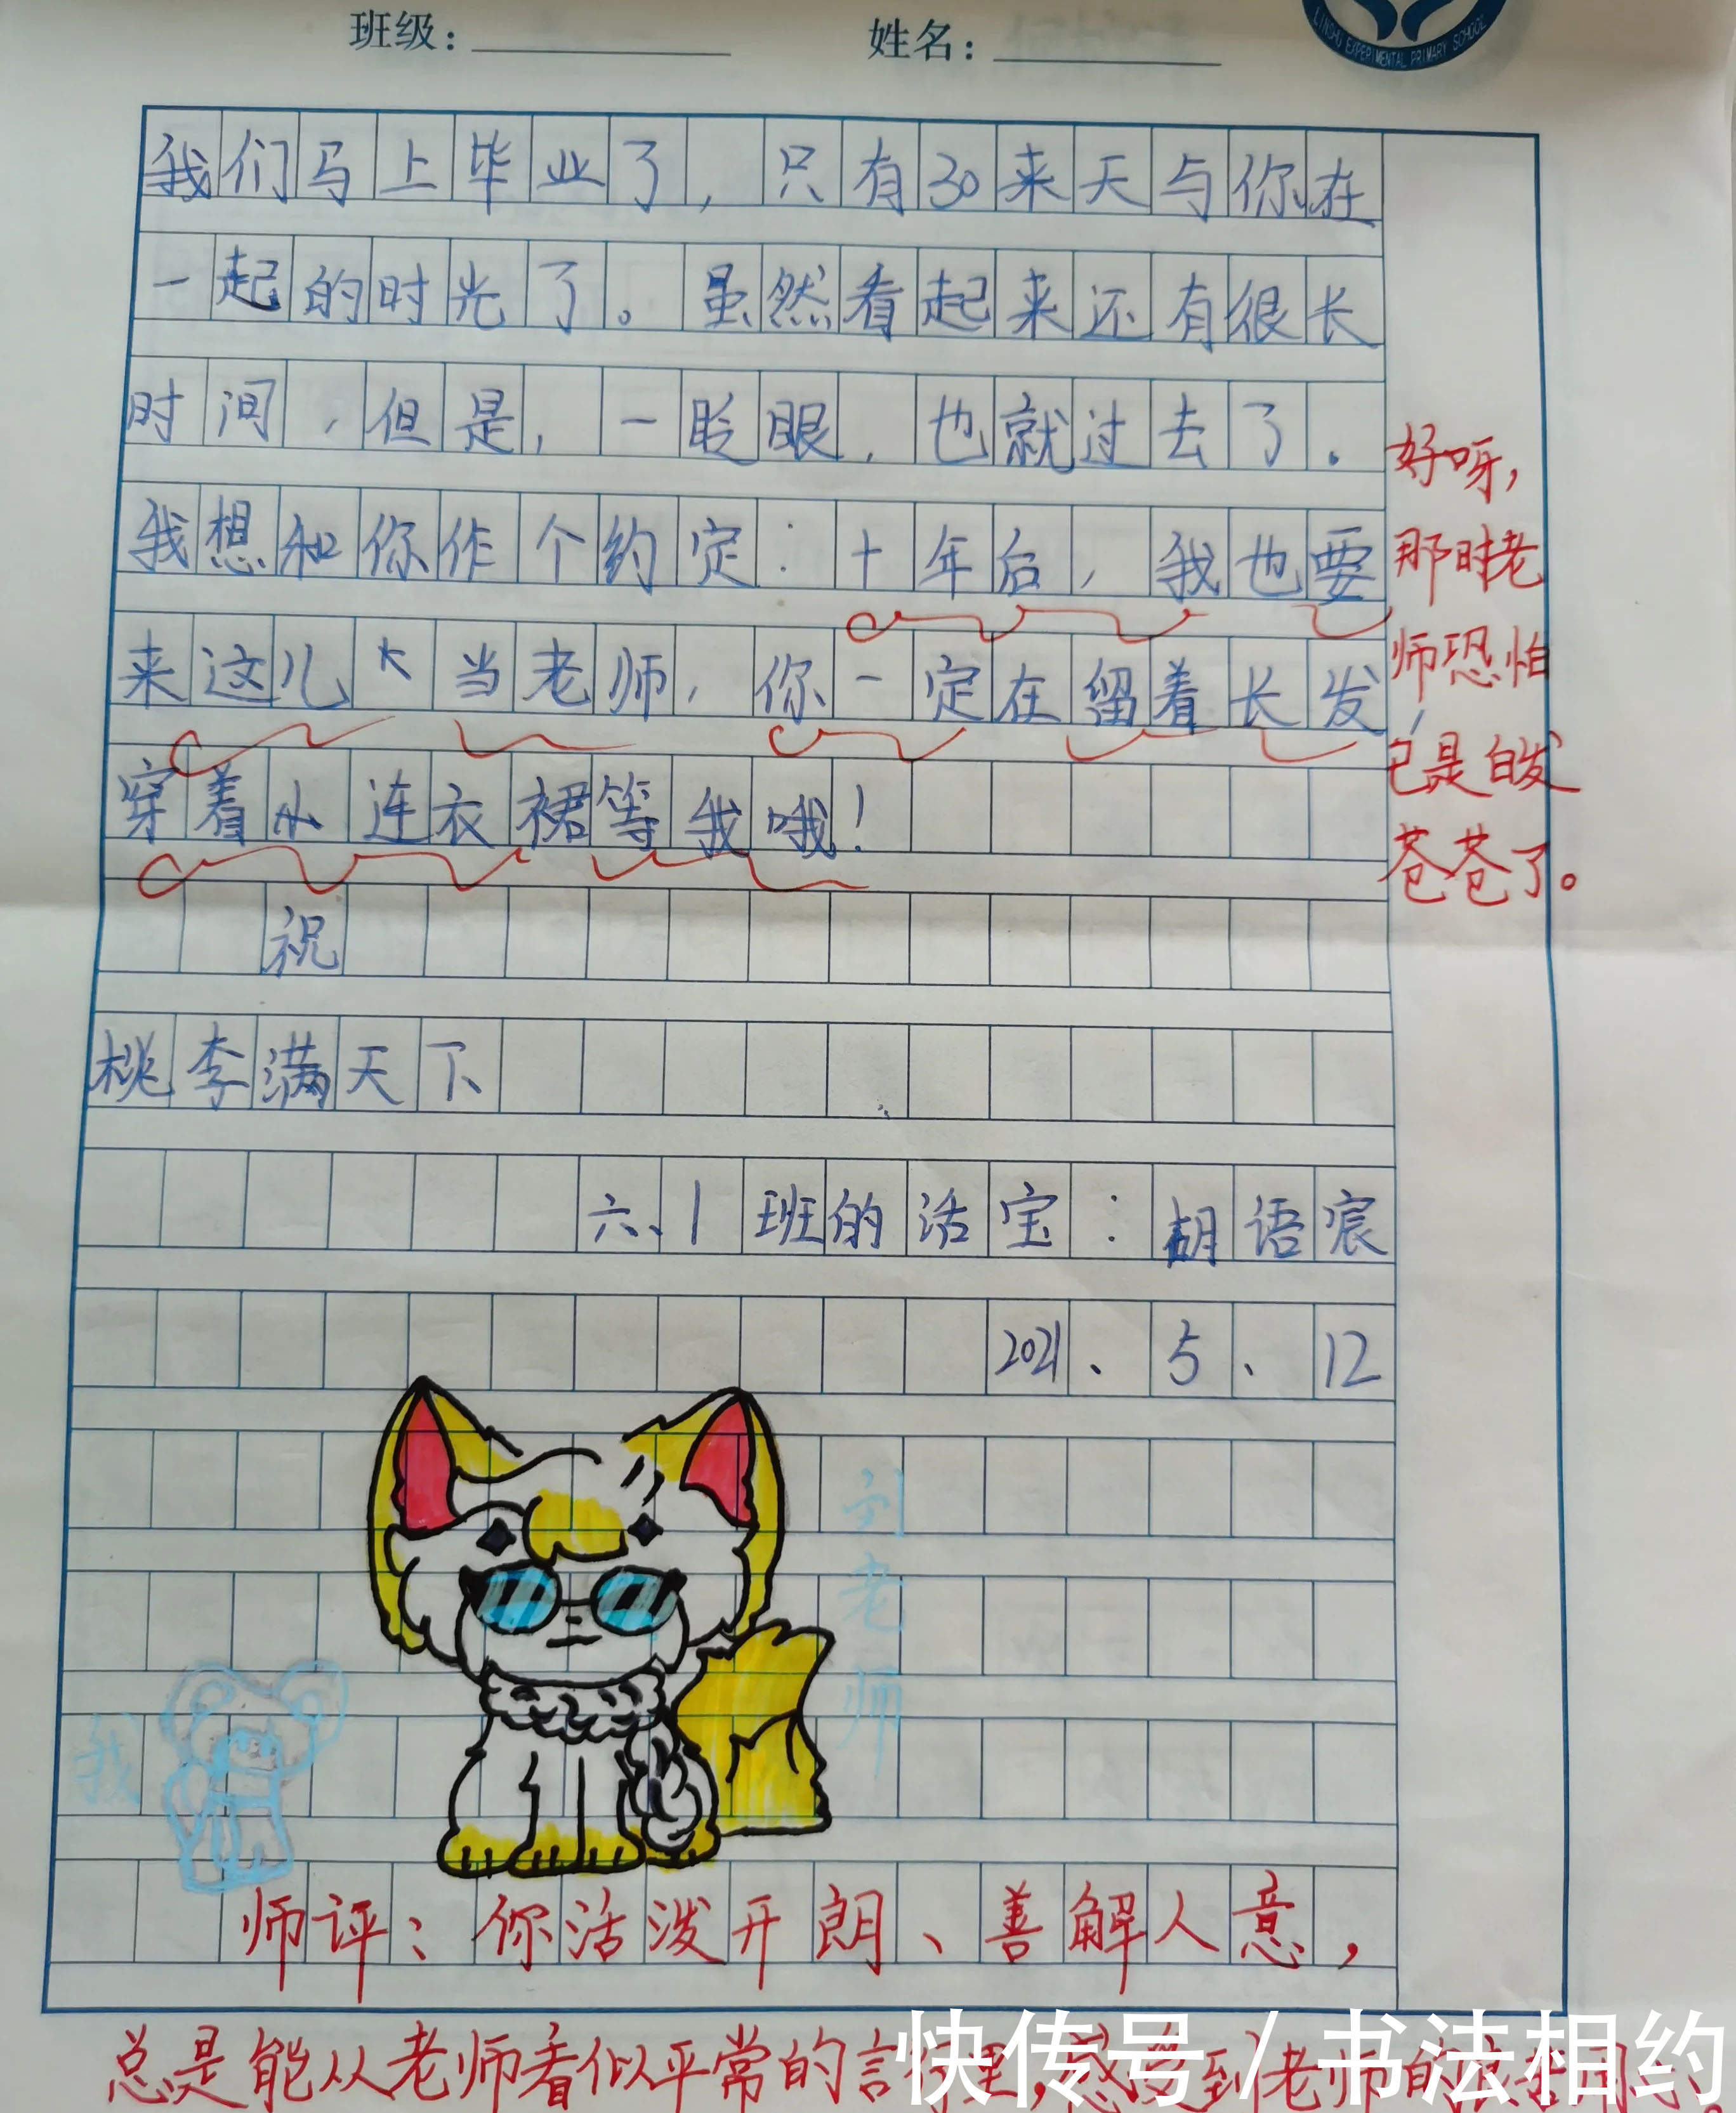 班级： 姓名：
LINSHU EXPERIMENTAL PRIMARY SCHOOL
我们马上毕业了，只有30来天与你在
一起的时光了。虽然看起来还有很长
时间，但是，一眨眼，也就过去了。
我想和你作个约定：十年后，我也要
来这儿当老师，你一定在留着长发，
穿着小连衣裙等我哦！
祝
桃李满天下
六、1班的活宝：胡语宸
2021、5、12
好呀，
那时老
师恐怕
已是白发
苍苍了。
刘老师
我
师评：你活泼开朗、善解人意，
总是能从老师看似平常的言行里，感受到老师的
快传号/书法相约